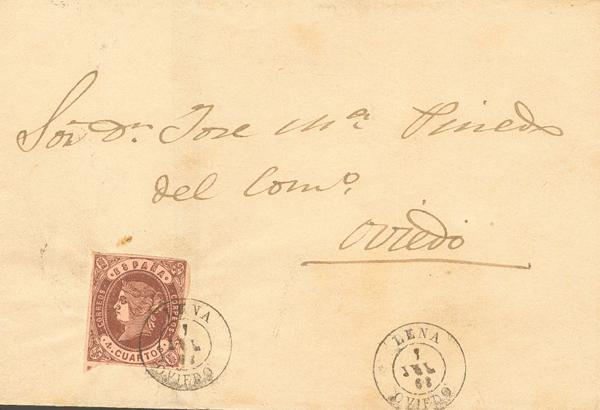 Sor. Dn. Jose Ma. Pineda
del Como.
Oviedo
ESPAÑA
CORREOS
4 CUARTOS
LENA
7
JUL
OVIEDO
LENA
7
JUL
63
OVIEDO